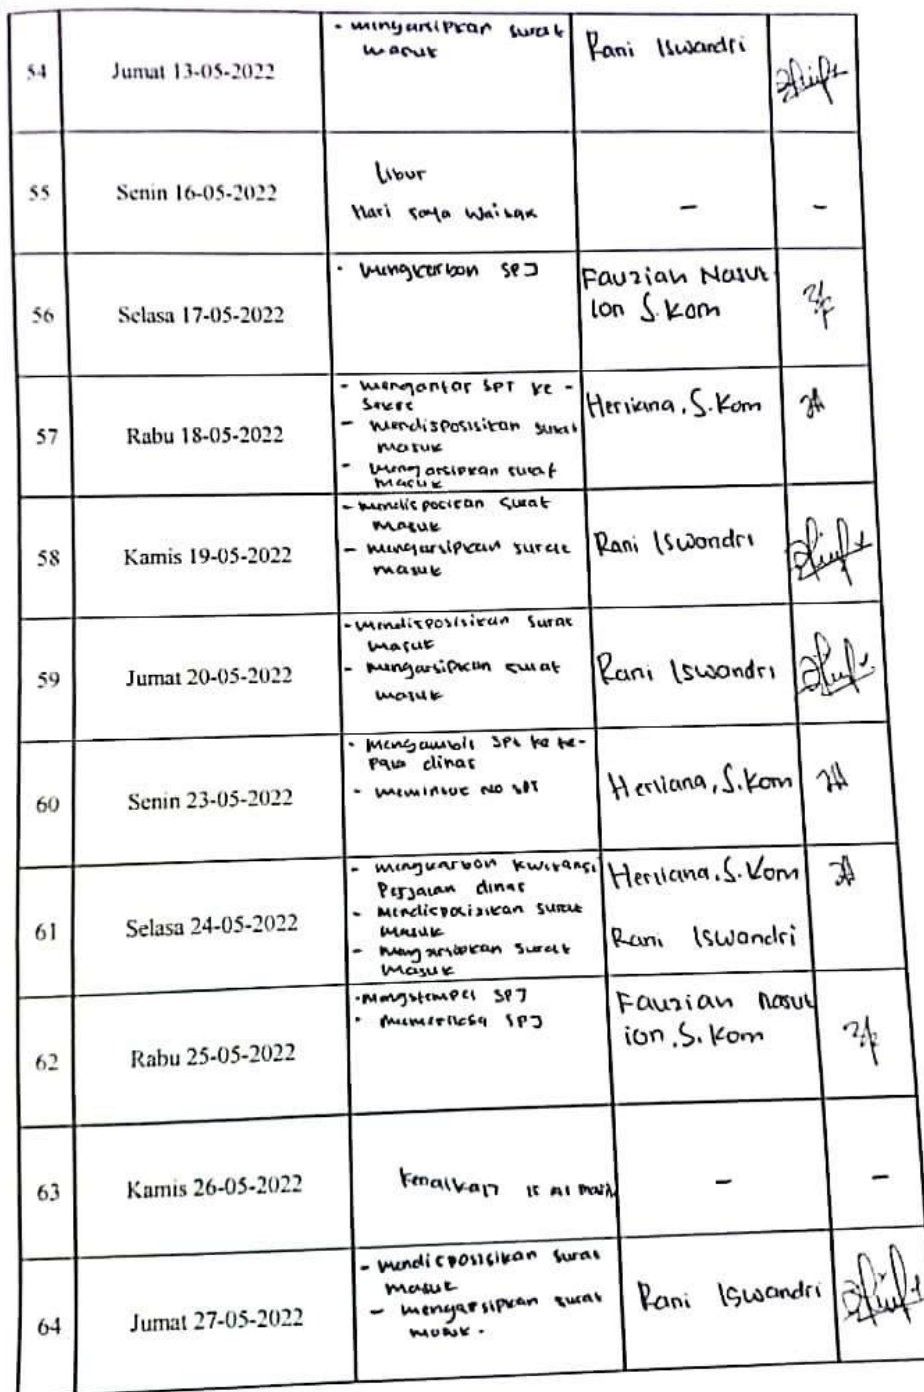 54
Jumat 13-05-2022
- mengarsipkan surat
masuk
Rani Iswandri
55
Senin 16-05-2022
Libur
Hari raya Waisak
-
-
56
Selasa 17-05-2022
- mengkarbon SPJ
Fauziah Nasut
ion S.Kom
57
Rabu 18-05-2022
- mengantar SPT ke -
Sekre
- mendisposisikan surat
masuk
- mengarsipkan surat
masuk
Herliana, S.Kom
58
Kamis 19-05-2022
- mendisposisikan surat
masuk
- mengarsipkan surat
masuk
Rani Iswandri
59
Jumat 20-05-2022
- mendisposisikan surat
masuk
- mengarsipkan surat
masuk
Rani Iswandri
60
Senin 23-05-2022
- mengambil SPT ke ke-
pala dinas
- meminta no SPT
Herliana, S.Kom
61
Selasa 24-05-2022
- mengkarbon kwitansi
Perjalan dinas
- mendisposisikan surat
masuk
- mengarsipkan surat
masuk
Herliana, S.Kom
Rani Iswandri
62
Rabu 25-05-2022
- mengstempel SPJ
- memeriksa SPJ
Fauziah Nasut
ion, S.Kom
63
Kamis 26-05-2022
Kenaikan
-
-
64
Jumat 27-05-2022
- mendisposisikan surat
masuk
- mengarsipkan surat
masuk.
Rani Iswandri